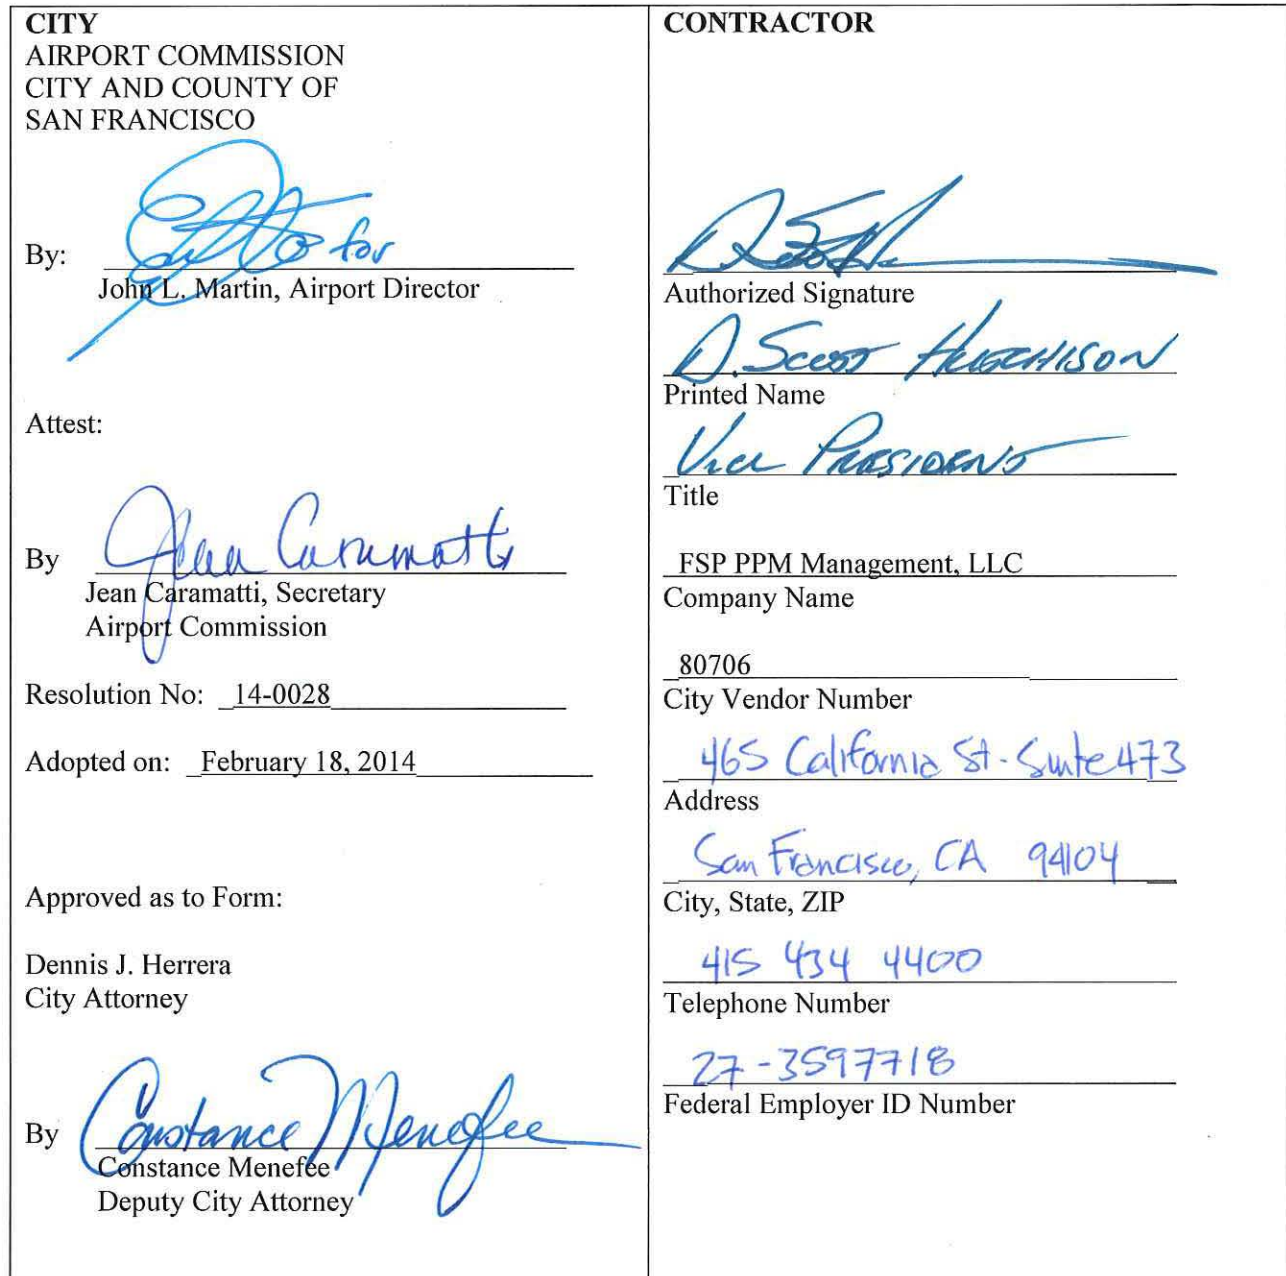 CITY
AIRPORT COMMISSION
CITY AND COUNTY OF
SAN FRANCISCO
for
By:
John L. Martin, Airport Director
Attest:
Jean Caramatti
By
Jean Caramatti, Secretary
Airport Commission
Resolution No: 14-0028
Adopted on: February 18, 2014
Approved as to Form:
Dennis J. Herrera
City Attorney
By Constance Menefee
Constance Menefee
Deputy City Attorney
CONTRACTOR
Authorized Signature
D. Scott Hutchison
Printed Name
Vice President
Title
FSP PPM Management, LLC
Company Name
80706
City Vendor Number
465 California St - Suite 473
Address
San Francisco, CA 94104
City, State, ZIP
415 434 4400
Telephone Number
27-3597718
Federal Employer ID Number